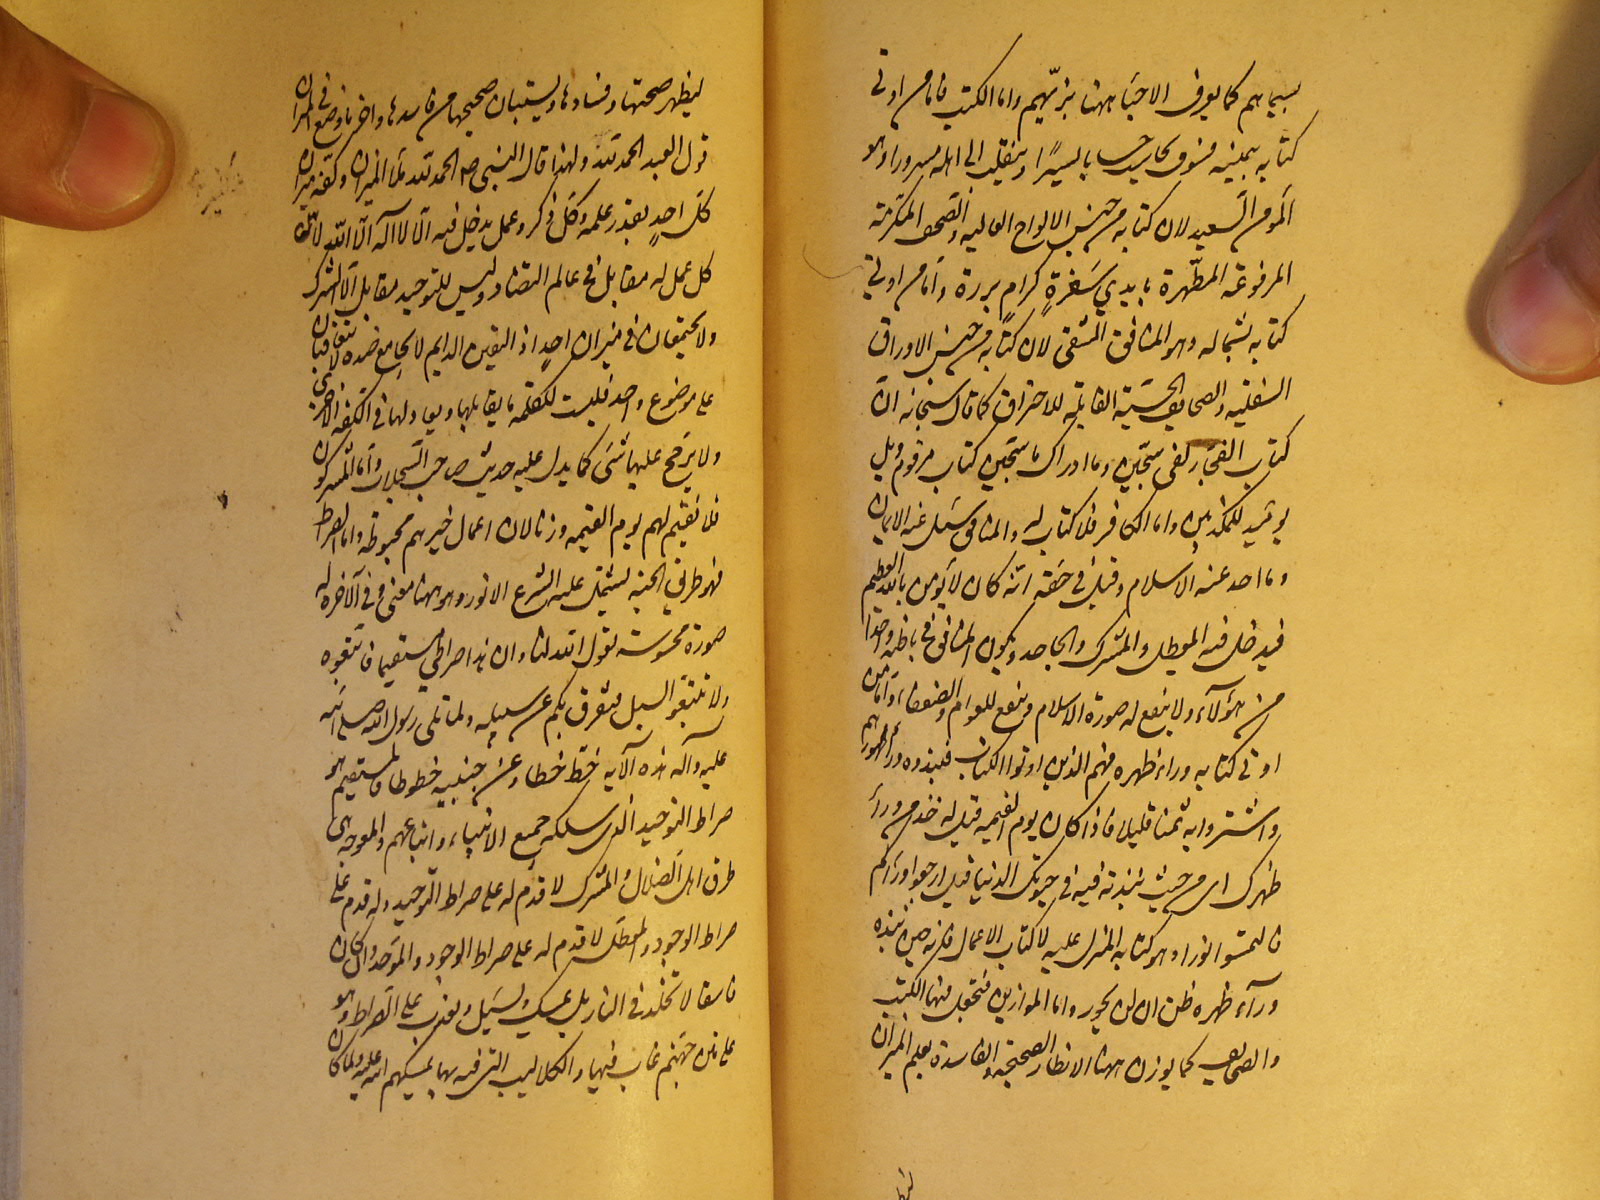 بسيماهم كما يعرف الاحبا ههنا بزيّهم واما الكتب فامامن اوتى
كتابه بيمينه فسوف يحاسب حسابا يسيرًا وينقلب الى اهله مسرورا وهو
المؤمن السعيد لان كتابه من جنس الالواح العاليه والصحف المكرّمة
المرفوعة المطهّرة بايدي سَفَرةٍ كرامٍ بررة وامامن اوتي
كتابه بشماله وهو المنافق الشقى لان كتابه من جنس الاوراق
السفليه والصحايف الحسّية القابلة للاحتراق كما قال سبحانه انّ
كتاب الفجّار لفى سجّين وما ادراك ما سجّين كتاب مرقوم ويل
يومئذ للمكذبين واما الكافر فلا كتاب له والمنافق سئل عنه الايمان
وما اخذ عنه الاسلام وقيل في حقه انّه كان لا يؤمن بالله العظيم
فيدخل فيه المعطل والمشرك والجاحد ويكون المنافق في باطنه واحدا
من هؤلاء ولا ينفع له صورة الاسلام وينفع للعوام والضعفاء وامامن
اوتى كتابه وراء ظهره فهم الذين اوتوا الكتاب فنبذوه وراء ظهورهم
واشتروا به ثمنا قليلا فاذا كان يوم القيمه قيل له خذ من وراء
ظهرك اى من حيث نبذته فيه في حيوتك الدنيا قيل ارجعوا وراءكم
فالتمسوا نورا وهو كتابه المنزل عليه لا كتاب الاعمال فانه حين نبذه
وراء ظهره ظن ان لن يحور واما الموازين فتجعل فيها الكتب
والصحايف كما يوزن ههنا الانظار الصحيحة والفاسدة بعلم الميزان
ليظهر صحتها وفسادها ويستبان صحيحها من فاسدها واخر ما وضع في الميزان
قول العبد الحمد لله ولهذا قال النبى ص الحمد لله تملأ الميزان وكفة ميزان
كل احدٍ بقدر علمه وكل ذكر وعمل يدخل فيه الّا لا اله الا الله لان
كل عمل له مقابل في عالم التضاد وليس للتوحيد مقابل الا الشرك
ولا يجتمعان في ميزان احدٍ اذ اليقين الدايم لا يجامع ضده لا يتعاقبان
على موضوع واحد فليست للكلمة ما يقابلها ويعادلها في الكفه الاخرى
ولا يرجح عليها شئ كما يدل عليه حديث صاحب السجلات واما المشركون
فلا نقيم لهم يوم القيمه وزنا لان اعمال خيرهم محبوطة واما الصراط
فهو طريق الجنة يشتمل عليه الشرع الانور وهو ههنا معنى وفي الآخره له
صورة محسوسة لقول الله لنا وان هذا صراطى مستقيما فاتبعوه
ولا تتبعوا السبل فتفرق بكم عن سبيله ولما تلى رسول الله صلى الله
عليه وآله هذه الآية خطّ خطا وعن جنبيه خطوطا فالمستقيم هو
صراط التوحيد الذى سلكه جميع الانبياء واتباعهم والمعوجه هى
طرق اهل الضلال والمشرك لا قدم له على صراط التوحيد وله قدم على
صراط الوجود والمعطّل لا قدم له على صراط الوجود والموحّد وان كان
فاسقا لا يخلّد في النار بل يمسك ويسئل ويعذب على الصراط وهو
على متن جهنم غاب فيها والكلاليب التى فيه بها يمسكهم الله عليه ولما كان